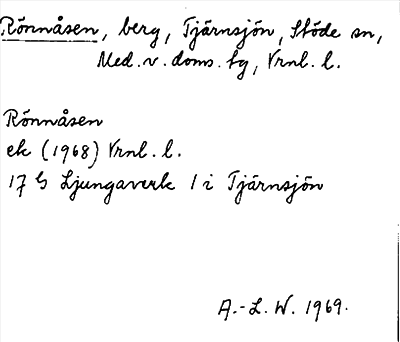 Rönnåsen, berg, Tjärnsjön, Stöde sn,
Med. v. doms. tg, Vrnl. l.
Rönnåsen
ek (1968) Vrnl. l.
17 G Ljungaverk 1 i Tjärnsjön
A.-L. W. 1969.